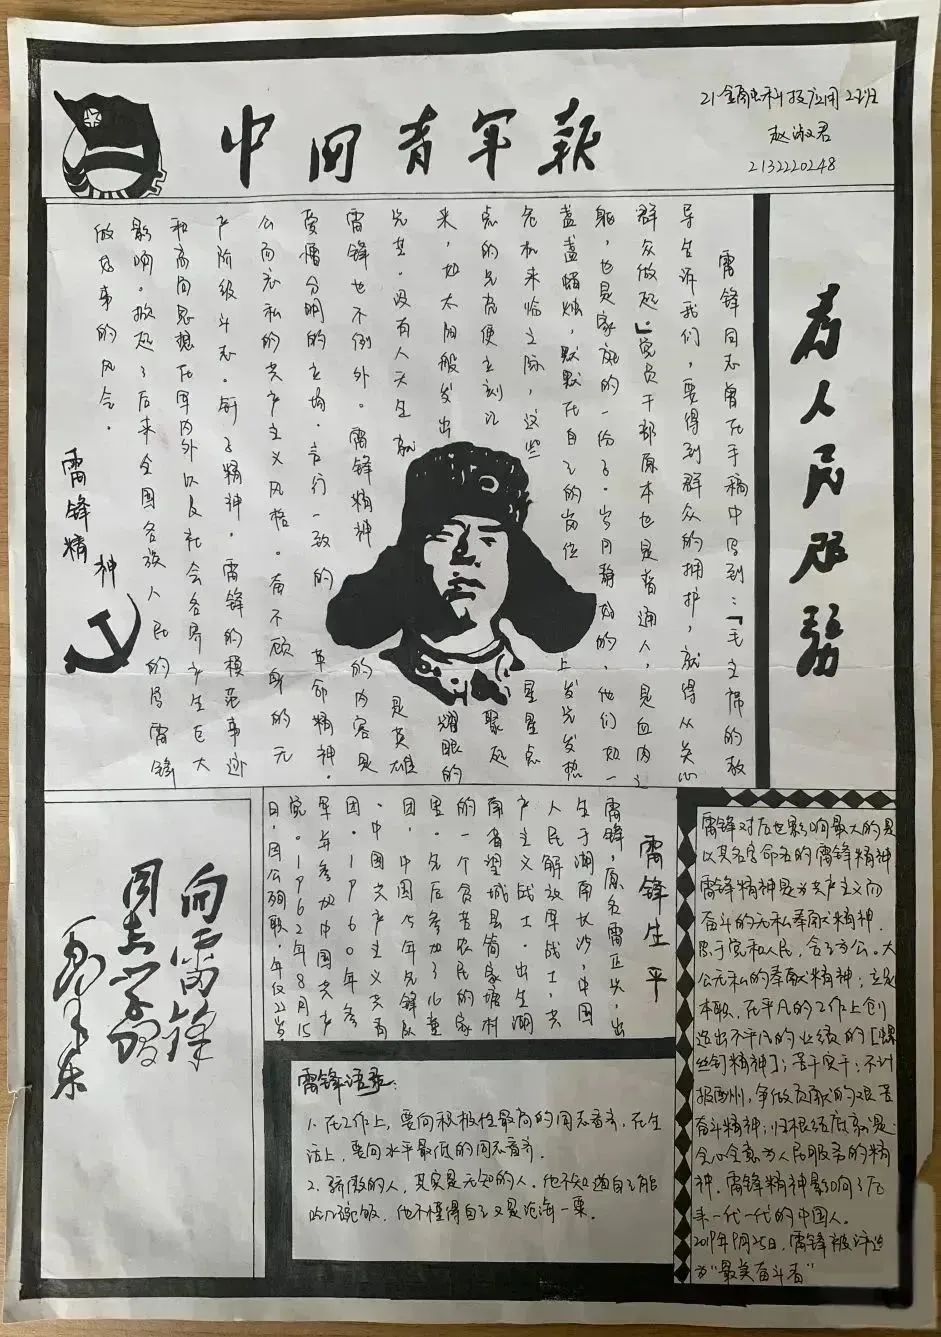 中国青年报
21金融科技应用2班
赵淑君
2132220248
为人民服务
雷锋同志曾在手稿中写到：「毛主席的教
导告诉我们，要得到群众的拥护，就得从关心
群众做起」党员干部原本也是普通人，是血肉之
躯，也是家庭的一份子。岁月静好的，他们如一
盏盏蜡烛，默默在自己的岗位上发光发热
危机来临之际，这些星星点
点的光亮便立刻汇聚起
来，如太阳般发出耀眼的
光芒。没有人天生就是英雄
雷锋也不例外。雷锋精神的内容是
爱憎分明的立场，言行一致的革命精神，
公而忘私的共产主义风格，奋不顾身的无
产阶级斗志。钉子精神，雷锋的模范事迹
和高尚思想在军内外以及社会各界产生巨大
影响。掀起了后来全国各族人民的学雷锋
做好事的风气。
雷锋精神
向雷锋
同志学习
毛泽东
雷锋生平
雷锋，原名雷正兴，出
生于湖南长沙，中国
人民解放军战士，共
产主义战士，出生湖
南省望城县简家塘村
的一个贫苦农民的家
里。先后参加了儿童
团，中国少年先锋队
，中国共产主义共青
团。1960年参
军并参加中国共产
党。1962年8月15
日，因公殉职，年仅22岁
雷锋语录：
1.在工作上，要向积极性最高的同志看齐，在生
活上，要向水平最低的同志看齐。
2.骄傲的人，其实是无知的人。他不知道自己能
吃几碗饭，他不懂得自己只是沧海一粟。
雷锋对后世影响最大的是
以其名字命名的雷锋精神
雷锋精神是为共产主义而
奋斗的无私奉献精神，
忠于党和人民，舍己为公。大
公无私的奉献精神；立足
本职，在平凡的工作上创
造出不平凡的业绩的[螺
丝钉精神]；苦干实干；不计
报酬，争做贡献的艰苦
奋斗精神；归根结底就是
全心全意为人民服务的精
神，雷锋精神影响了后
来一代一代的中国人。
2019年9月25日，雷锋被评选
为"最美奋斗者"